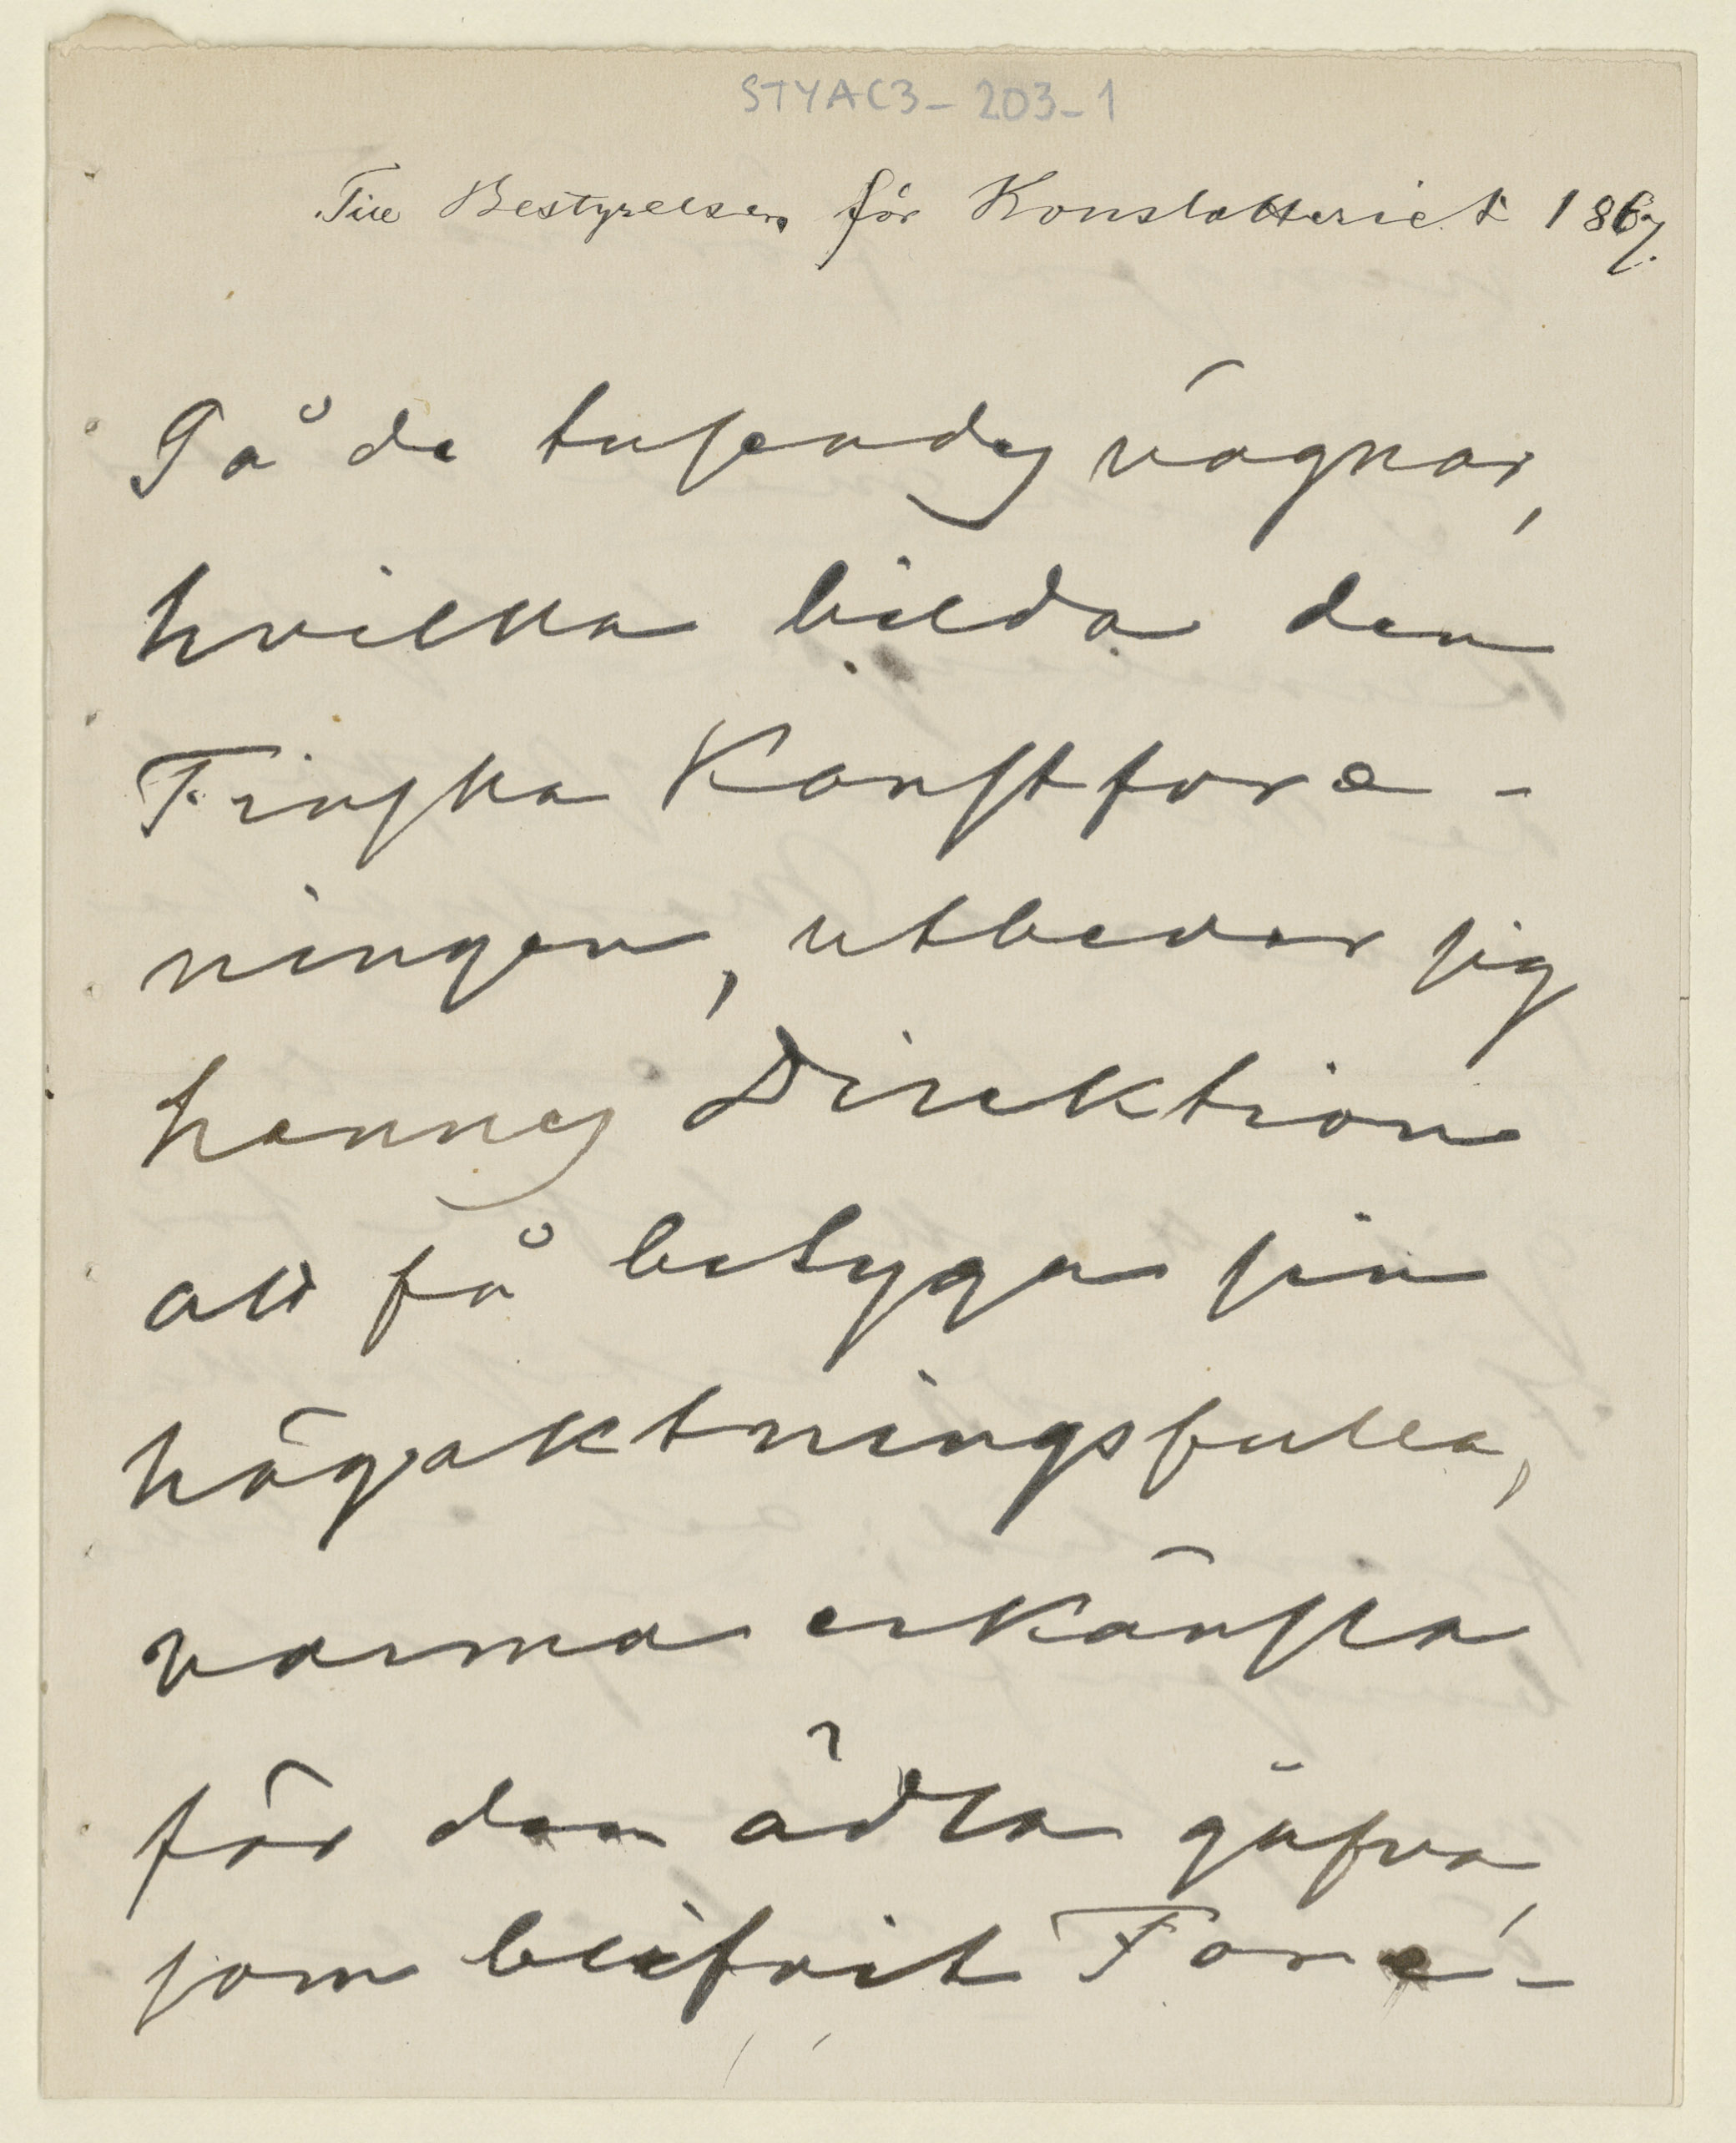 STYAC3-203-1
Till Bestyrelsen för Konstlotteriet 1867.
På de tusendes vägnar,
hvilka bilda den
Finska Konstföre-
ningen, utbeder sig
hennes Direktion
att få betyga sin
högaktningsfulla,
varma erkänsla
för den ädla gåfva,
som blifvit Före-